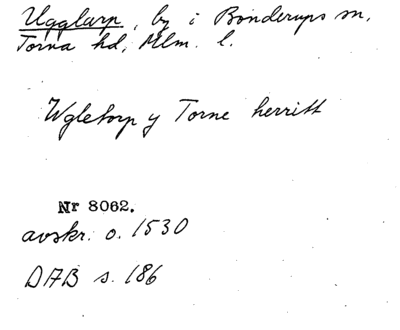 Ugglarp, by i Bonderups sn,
Torna hd, Mlm. l.
Wgletorp y Torne herritt
Nr 8062.
avskr. o. 1530
DAB s. 186